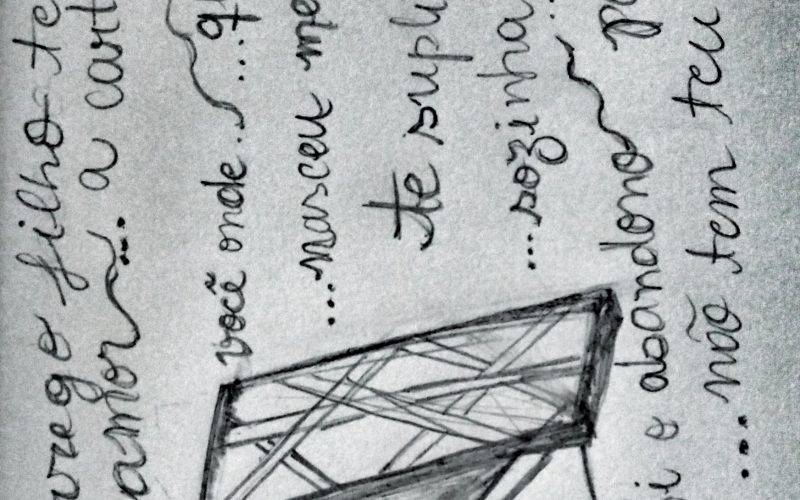 filho te
amor... a cart
você onde... ...q
...nasceu me
te supl
...sozinha...
i e abandono p
...não tem teu